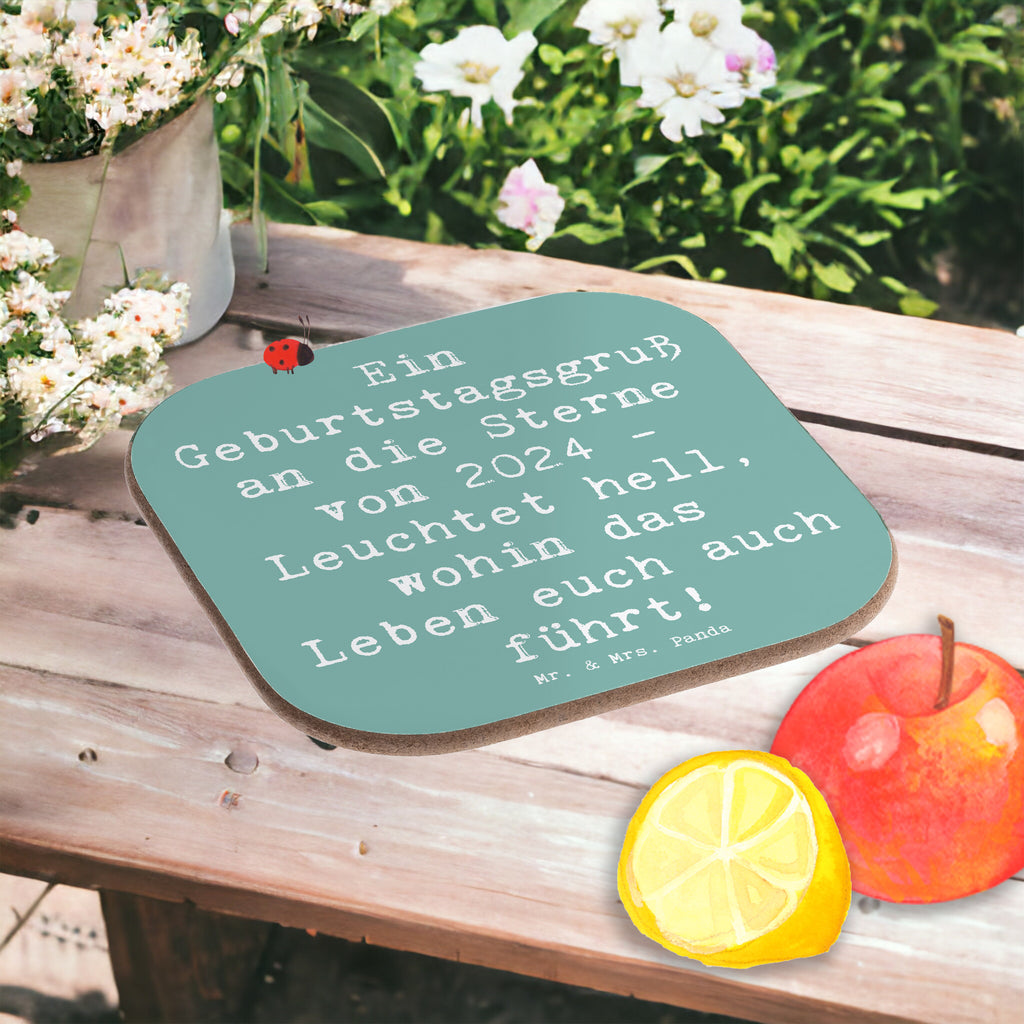 Ein
Geburtstagsgruß
an die Sterne
von 2024 –
Leuchtet hell,
wohin das
Leben euch auch
führt!
Mr. & Mrs. Panda